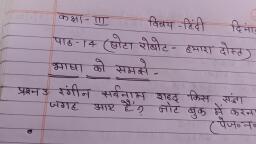 कक्षा - III विषय - हिंदी दिनां
पाठ - 14 (छोटा रोबोट - हमारा दोस्त)
भाषा को समझो -
प्रश्न 3 रंगीन सर्वनाम शब्द किस संज्ञा
जगह आए हैं? नोट बुक में करना
(पेज न०